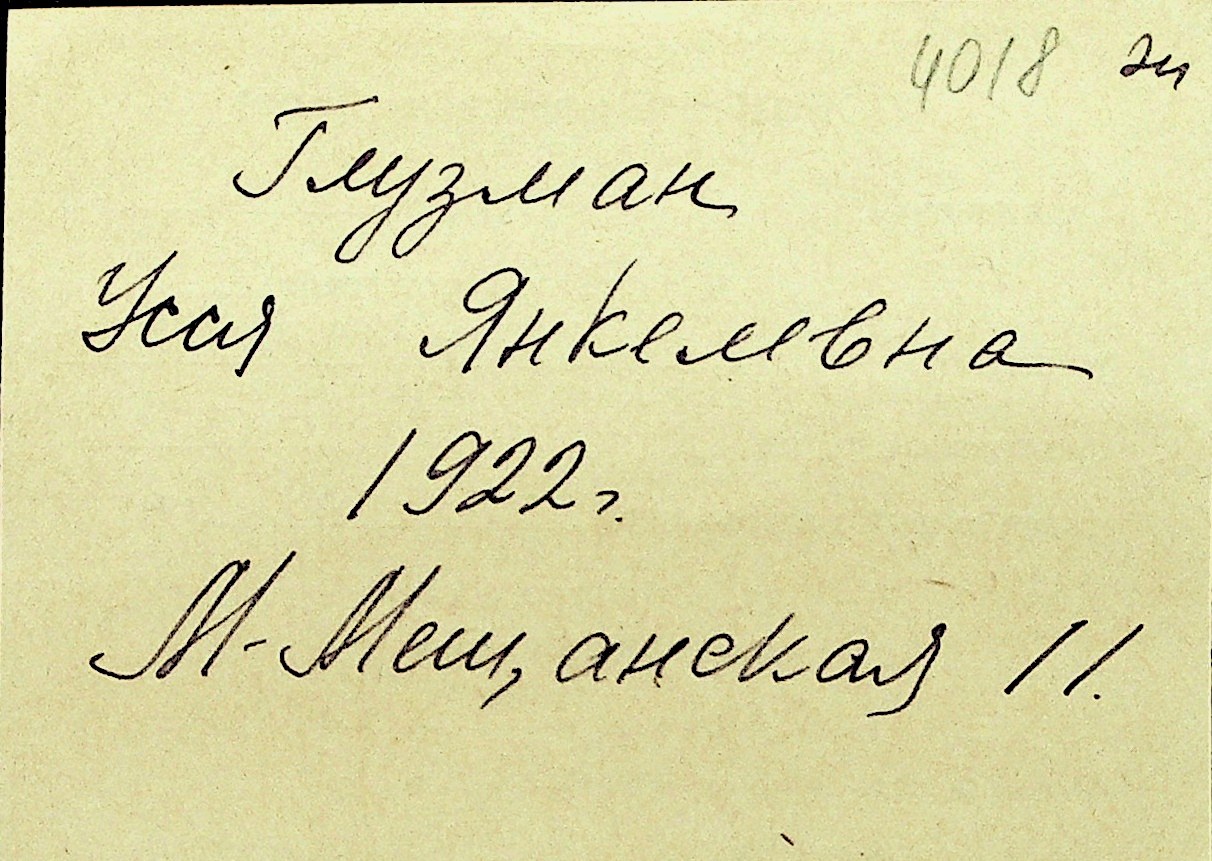 4018
Глузман
Уся Янкелевна
1922г.
М-Мещанская 11.